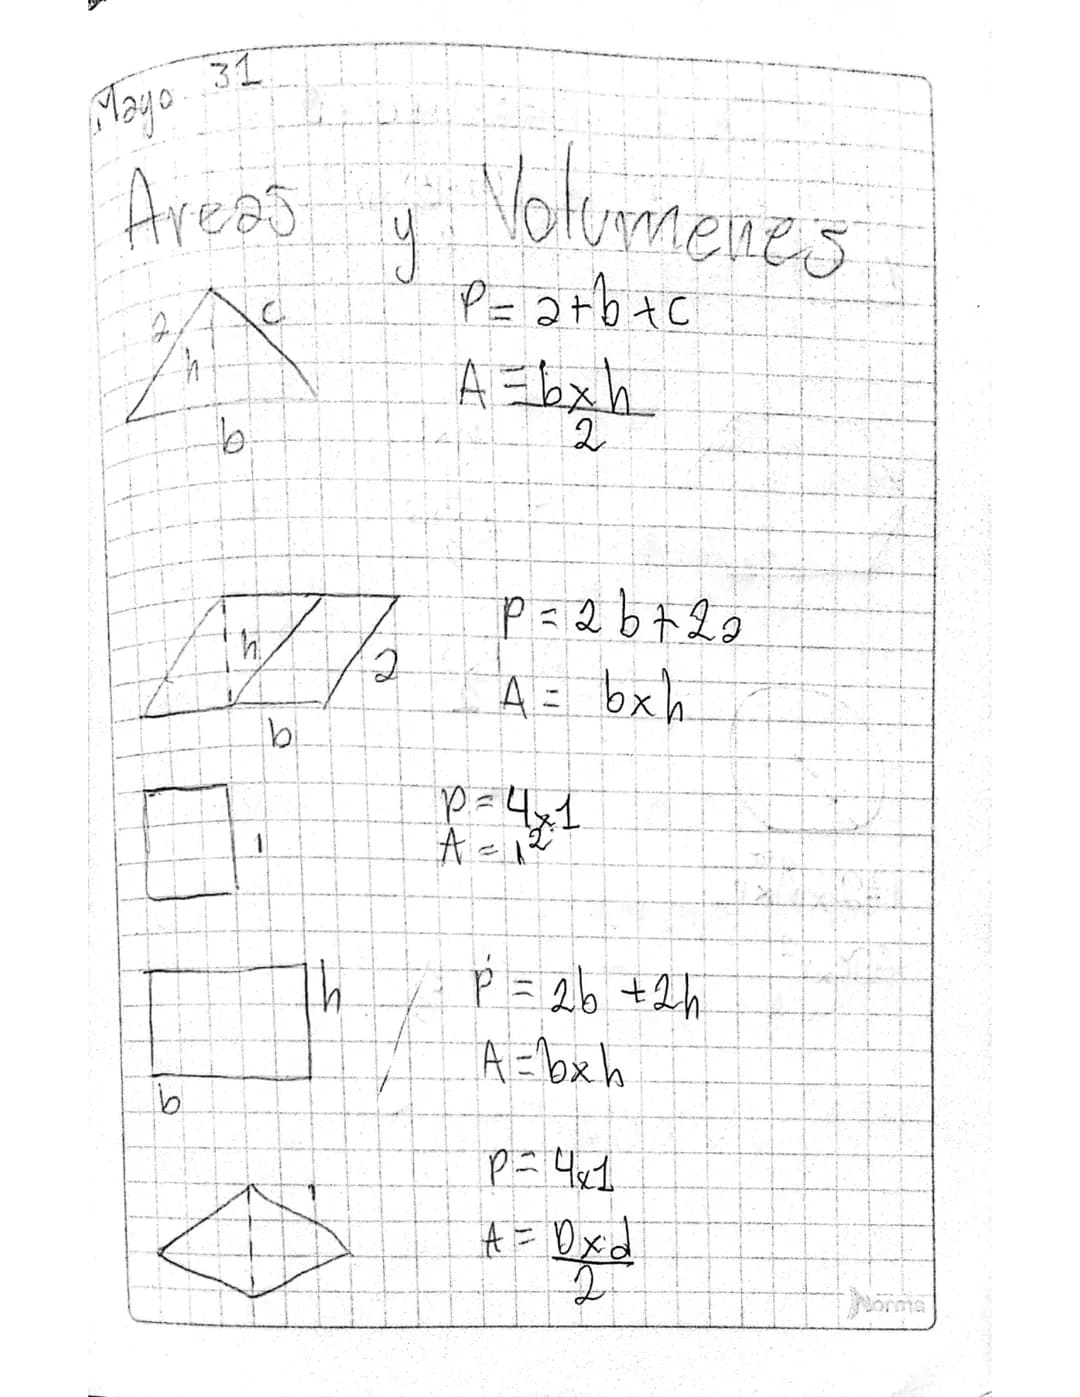 Mayo 31
Areas y Volumenes
a c
h
b
P = a+b+c
A = bxh
2
h
a
b
P = 2b+2a
A = bxh
1
P = 4x1
A = 1²
h
b
P = 2b +2h
A = bxh
1
P = 4x1
A = Dxd
2
Norma